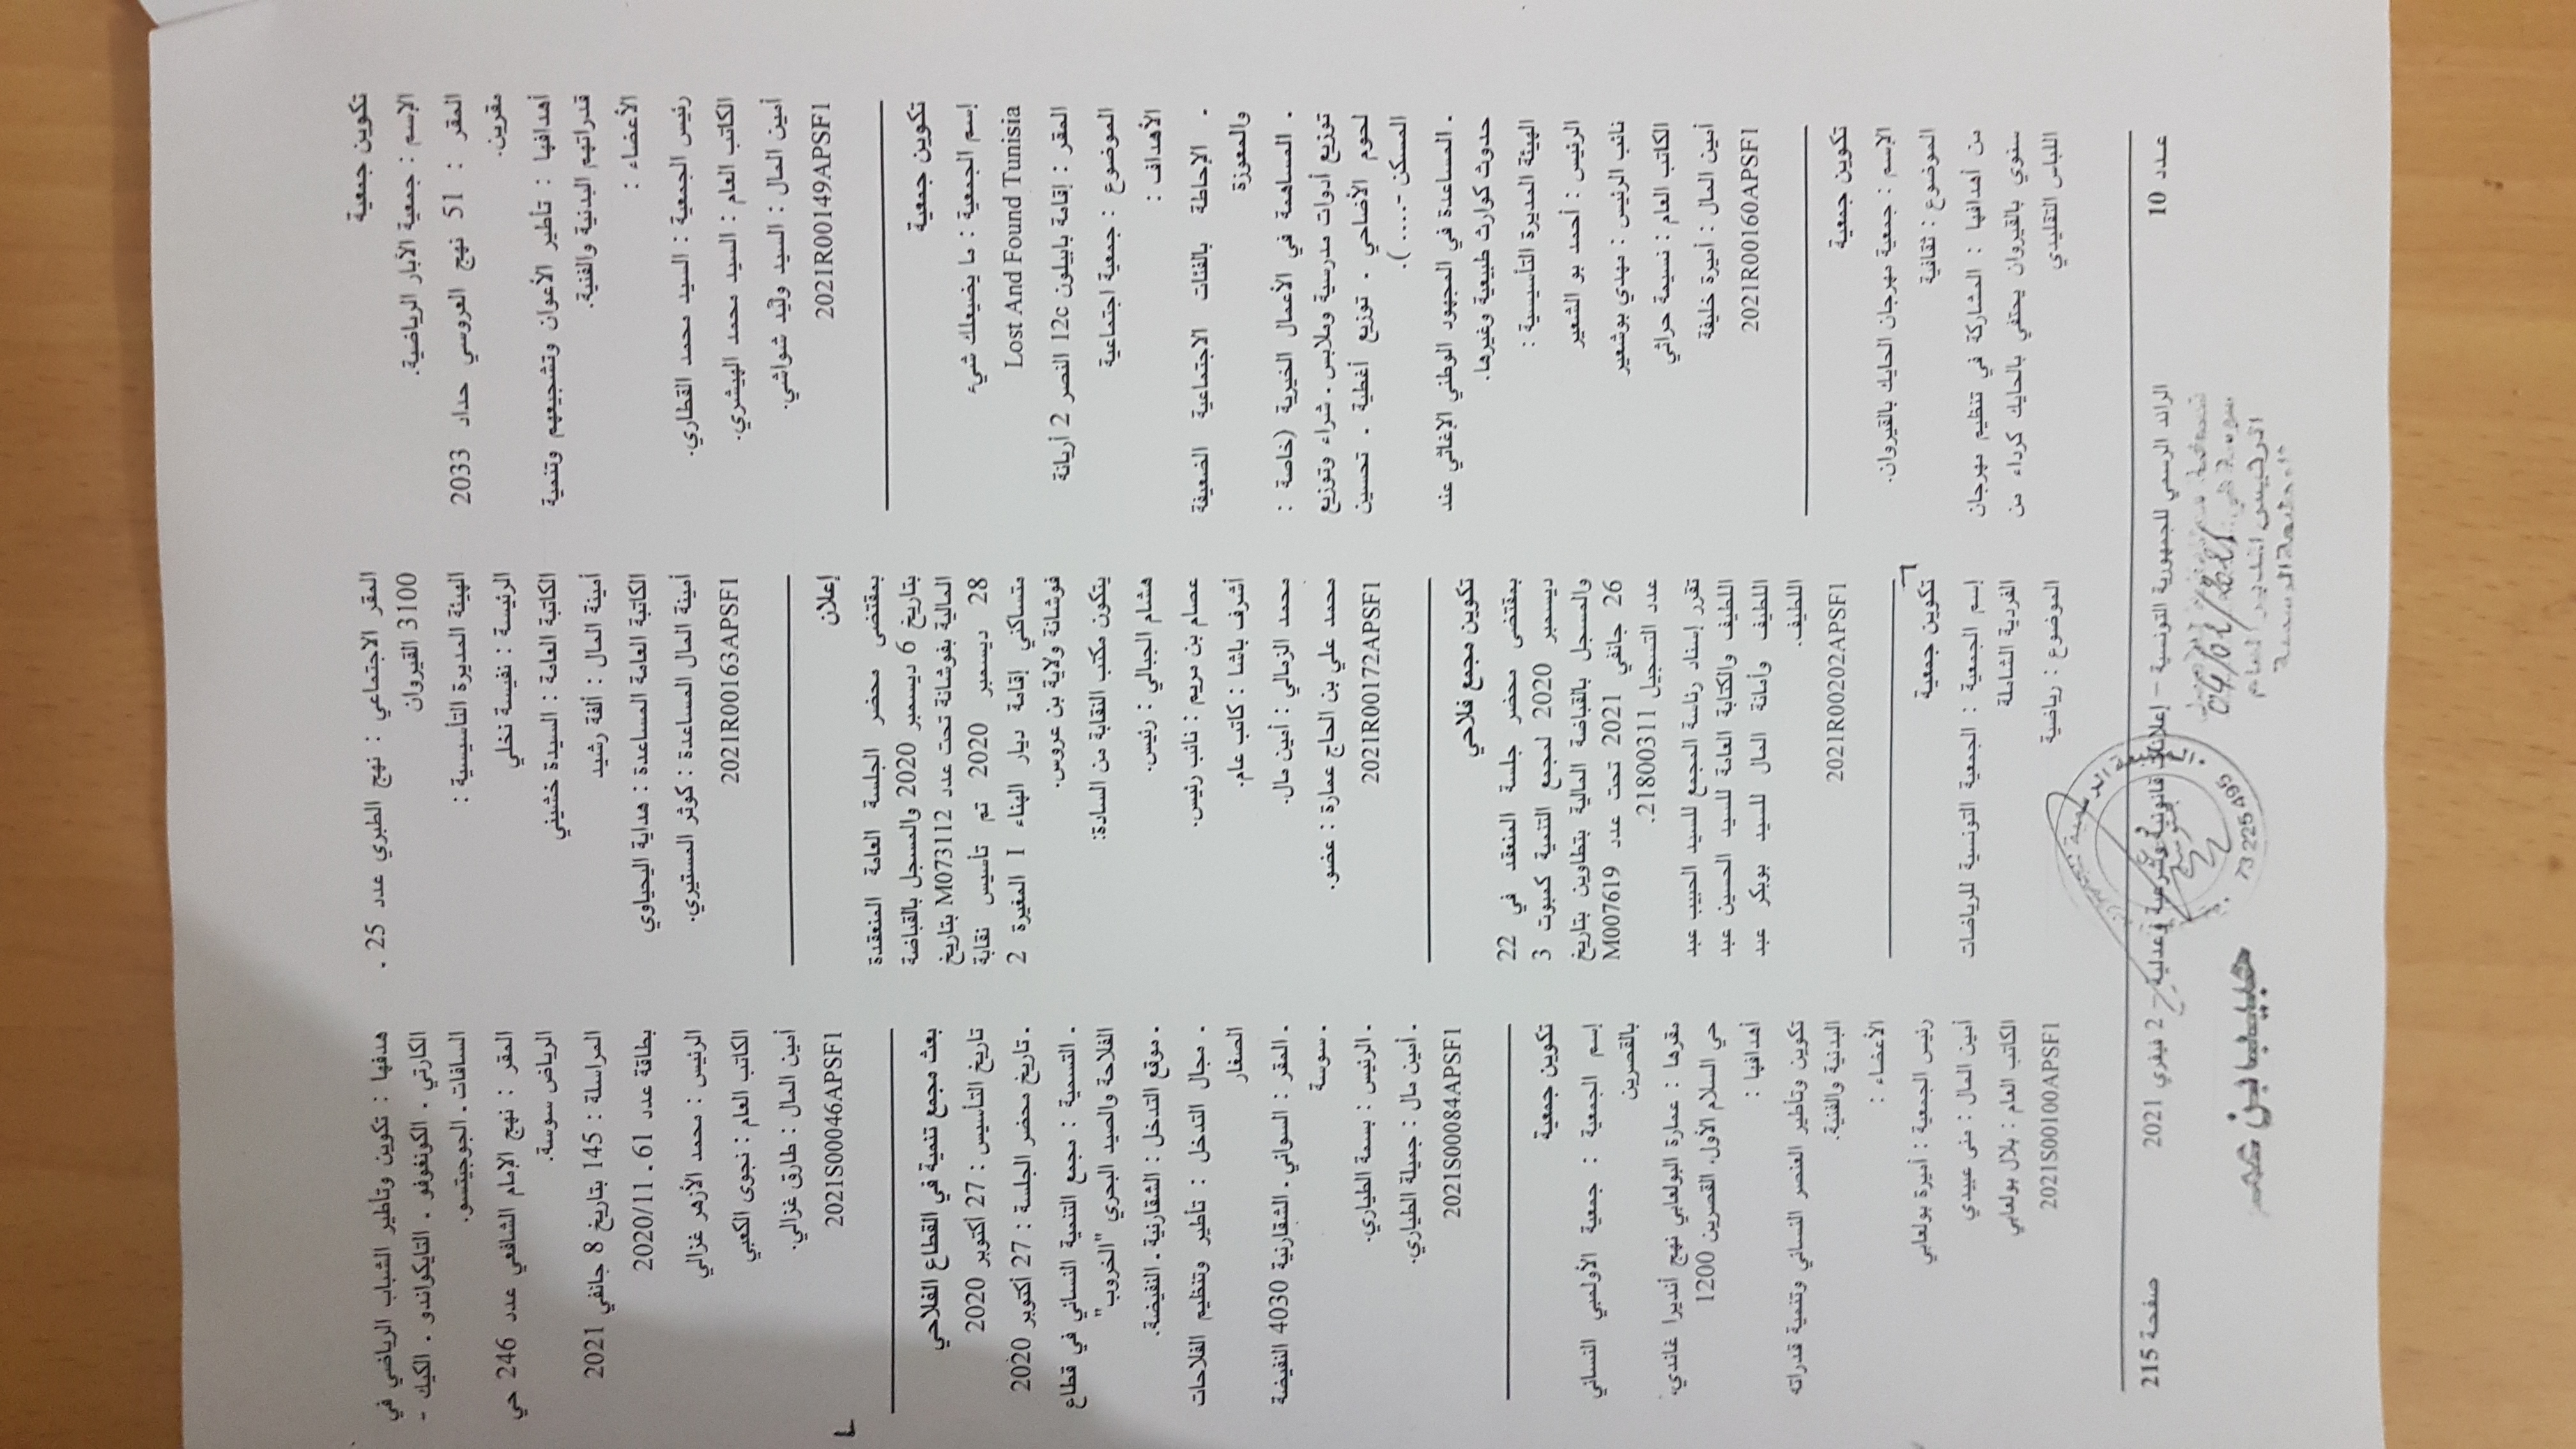 تكوين جمعية
الإسم : جمعية الأبار الرياضية.
المقر : 51 نهج العروسي حداد 2033
مقرين.
أهدافها : تأطير الأعوان وتشجيعهم وتنمية
قدراتهم البدنية والفنية.
الأعضاء :
رئيس الجمعية : السيد محمد القطاري.
الكاتب العام : السيد محمد الهيشري.
أمين المال : السيد وليد شواشي.
2021R00149APSF1
تكوين جمعية
إسم الجمعية : ما يضيعلك شيء
Lost And Found Tunisia
المقر : إقامة بابيلون 12c النصر 2 أريانة
الموضوع : جمعية اجتماعية
الأهداف :
. الإحاطة بالفئات الاجتماعية الضعيفة
والمعوزة
. المساهمة في الأعمال الخيرية (خاصة :
توزيع أدوات مدرسية وملابس . شراء وتوزيع
لحوم الأضاحي . توزيع أغطية . تحسين
المسكن -.... ).
. المساعدة في المجهود الوطني الإغاثي عند
حدوث كوارث طبيعية وغيرها.
الهيئة المديرة التأسيسية :
الرئيس : أحمد بو الشعير
نائب الرئيس : مهدي بوشعير
الكاتب العام : نسيمة حراثي
أمين المال : أميرة خليفة
2021R00160APSF1
تكوين جمعية
الإسم : جمعية مهرجان الحايك بالقيروان.
الموضوع : ثقافية
من أهدافها : المشاركة في تنظيم مهرجان
سنوي بالقيروان يحتفي بالحايك كرداء من
اللباس التقليدي
المقر الاجتماعي : نهج الطبري عدد 25 .
3100 القيروان
الهيئة المديرة التأسيسية :
الرئيسة : نفيسة نخلي
الكاتبة العامة : السيدة خشيني
أمينة المال : ألفة رشيد
الكاتبة العامة المساعدة : هداية اليحياوي
أمينة المال المساعدة : كوثر المستيري.
2021R00163APSF1
إعلان
بمقتضى محضر الجلسة العامة المنعقدة
بتاريخ 6 ديسمبر 2020 والمسجل بالقباضة
المالية بفوشانة تحت عدد M073112 بتاريخ
28 ديسمبر 2020 تم تأسيس نقابة
متساكني إقامة ديار الهناء 1 المغيرة 2
فوشانة ولاية بن عروس.
يتكون مكتب النقابة من السادة:
هشام الجبالي : رئيس.
عصام بن مريم : نائب رئيس.
أشرف باشا : كاتب عام.
محمد الزمالي : أمين مال.
محمد علي بن الحاج عمارة : عضو.
2021R00172APSF1
تكوين مجمع فلاحي
بمقتضى محضر جلسة المنعقد في 22
ديسمبر 2020 لمجمع التنمية كمبوت 3
والمسجل بالقباضة المالية بتطاوين بتاريخ
26 جانفي 2021 تحت عدد M007619
عدد التسجيل 21800311.
تقرر إسناد رئاسة المجمع للسيد الحبيب عبد
اللطيف والكتابة العامة للسيد الحسين عبد
اللطيف وأمانة المال للسيد بوبكر عبد
اللطيف.
2021R00202APSF1
تكوين جمعية
إسم الجمعية : الجمعية التونسية للرياضات
الفردية الشاملة
الموضوع : رياضية
هدفها : تكوين وتأطير الشباب الرياضي في
الكارتي . الكونغوفو . التايكواندو . الكيك -
السافات . الجوجيتسو.
المقر : نهج الإمام الشافعي عدد 246 حي
الرياض سوسة.
المراسلة : 145 بتاريخ 8 جانفي 2021
بطاقة عدد 61 . 2020/11
الرئيس : محمد الأزهر غزالي
الكاتب العام : نجوى الكعبي
أمين المال : طارق غزالي.
2021S00046APSF1
بعث مجمع تنمية في القطاع الفلاحي
تاريخ التأسيس : 27 أكتوبر 2020
. تاريخ محضر الجلسة : 27 أكتوبر 2020
. التسمية : مجمع التنمية النسائي في قطاع
الفلاحة والصيد البحري "الخروب"
. موقع التدخل : الشقارنية . النفيضة.
. مجال التدخل : تأطير وتنظيم الفلاحات
الصغار
. المقر : السواني . الشقارنية 4030 النفيضة
. سوسة
. الرئيس : بسمة الطياري.
. أمين مال : جميلة الطياري.
2021S00084APSF1
تكوين جمعية
إسم الجمعية : جمعية الأولمبي النسائي
بالقصرين
مقرها : عمارة البولعابي نهج أنديرا غاندي.
حي السلام الأول. القصرين 1200
أهدافها :
تكوين وتأطير العنصر النسائي وتنمية قدراته
البدنية والفنية.
الأعضاء :
رئيس الجمعية : أميرة بولعابي
أمين المال : منى عبيدي
الكاتب العام : بلال بولعابي
2021S00100APSF1
عـدد 10 الرائد الرسمي للجمهورية التونسية – إعلانات قانونية وشرعية وعدلية – 2 فيفري 2021 صفحة 215
04/02/2021
73 225 495